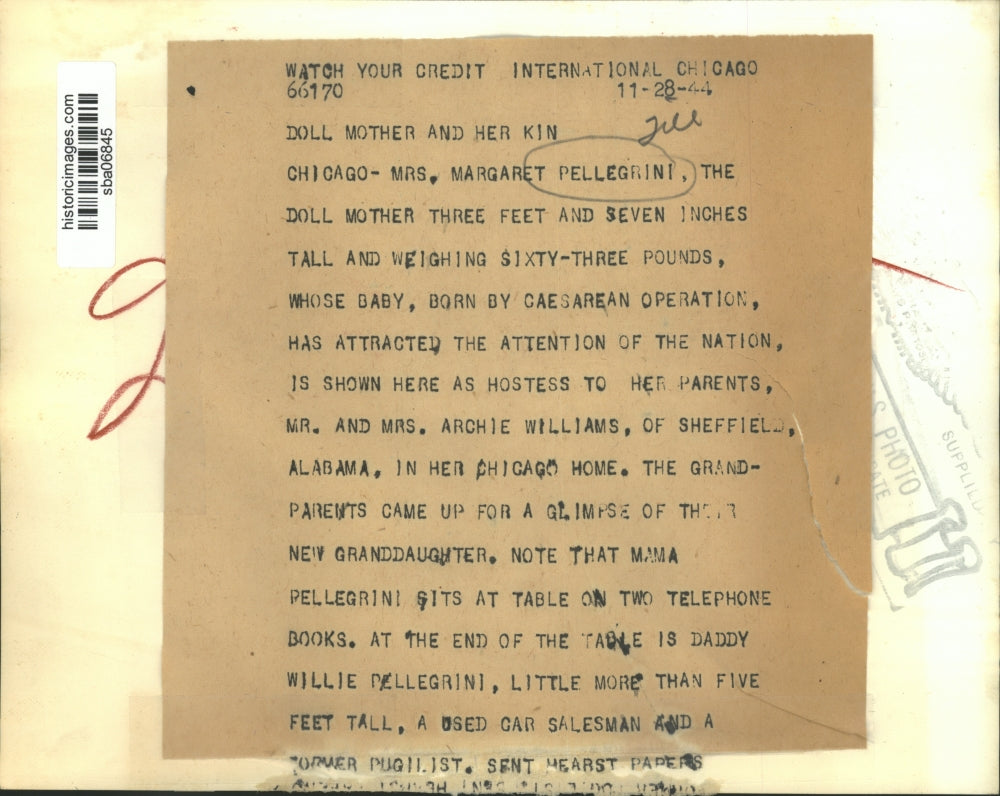 historicimages.com
sba06845
WATCH YOUR CREDIT INTERNATIONAL CHICAGO
66170 11-28-44
DOLL MOTHER AND HER KIN
CHICAGO- MRS. MARGARET PELLEGRINI, THE
DOLL MOTHER THREE FEET AND SEVEN INCHES
TALL AND WEIGHING SIXTY-THREE POUNDS,
WHOSE BABY, BORN BY CAESAREAN OPERATION,
HAS ATTRACTED THE ATTENTION OF THE NATION,
IS SHOWN HERE AS HOSTESS TO HER PARENTS,
MR. AND MRS. ARCHIE WILLIAMS, OF SHEFFIELD,
ALABAMA, IN HER CHICAGO HOME. THE GRAND-
PARENTS CAME UP FOR A GLIMPSE OF THEIR
NEW GRANDDAUGHTER. NOTE THAT MAMA
PELLEGRINI SITS AT TABLE ON TWO TELEPHONE
BOOKS. AT THE END OF THE TABLE IS DADDY
WILLIE PELLEGRINI, LITTLE MORE THAN FIVE
FEET TALL, A USED CAR SALESMAN AND A
FORMER PUGILIST. SENT HEARST PAPERS
PHOTO
SUPPLIED